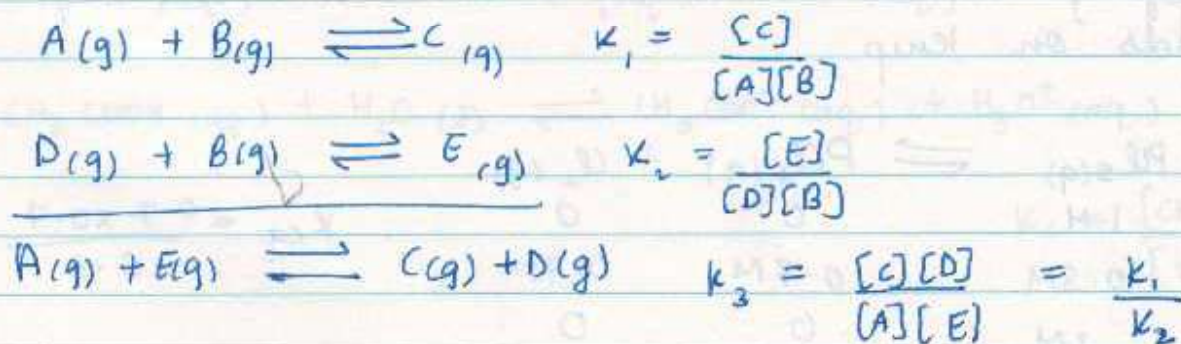 A(g) + B(g) ⇌ C(g) K₁ = [C] / [A][B]
D(g) + B(g) ⇌ E(g) K₂ = [E] / [D][B]
A(g) + E(g) ⇌ C(g) + D(g) K₃ = [C][D] / [A][E] = K₁ / K₂